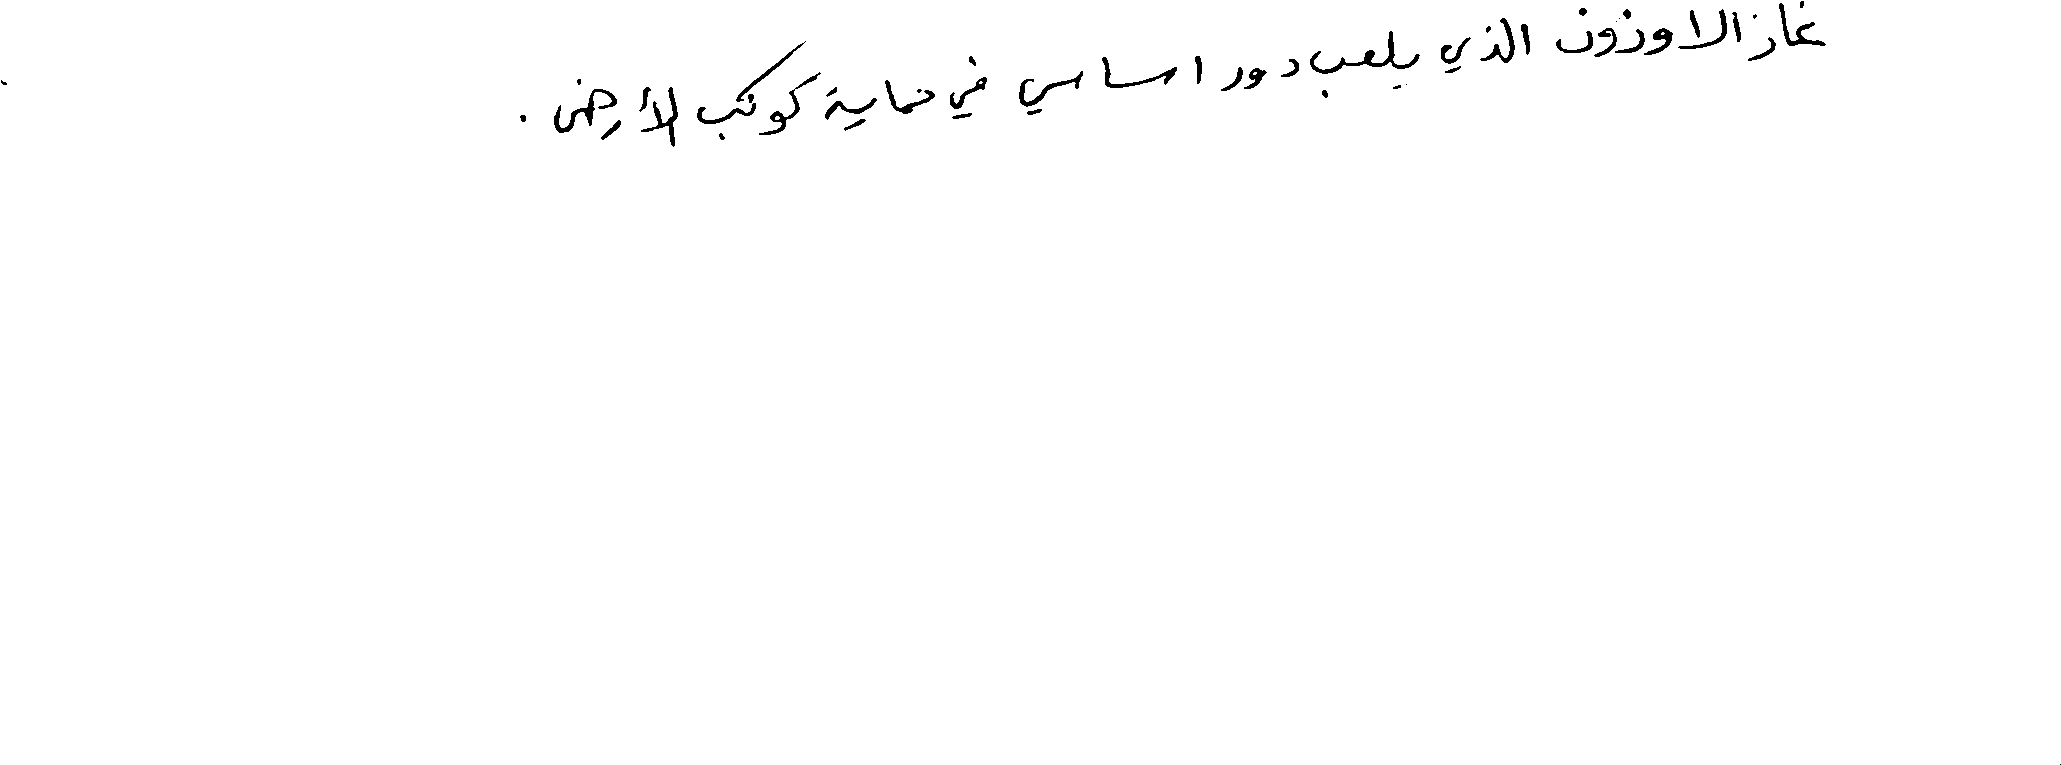 غاز الاوزون الذي يلعب دور اساسي في حماية كوكب الأرض .